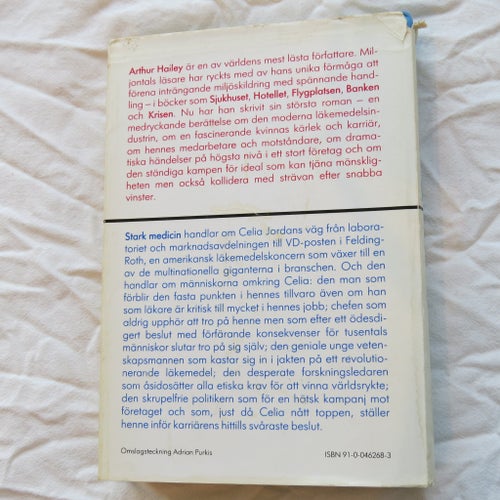 Arthur Hailey är en av världens mest lästa författare. Mil-
jontals läsare har ryckts med av hans unika förmåga att
förena inträngande miljöskildring med spännande hand-
ling – i böcker som Sjukhuset, Hotellet, Flygplatsen, Banken
och Krisen. Nu har han skrivit sin största roman – en
medryckande berättelse om den moderna läkemedelsin-
dustrin, om en fascinerande kvinnas kärlek och karriär,
om hennes medarbetare och motståndare, om drama-
tiska händelser på högsta nivå i ett stort företag och om
den ständiga kampen för ideal som kan tjäna mänsklig-
heten men också kollidera med strävan efter snabba
vinster.
Stark medicin handlar om Celia Jordans väg från labora-
toriet och marknadsavdelningen till VD-posten i Felding-
Roth, en amerikansk läkemedelskoncern som växer till en
av de multinationella giganterna i branschen. Och den
handlar om människorna omkring Celia: den man som
förblir den fasta punkten i hennes tillvaro även om han
som läkare är kritisk till mycket i hennes jobb; chefen som
aldrig upphör att tro på henne men som efter ett ödesdi-
gert beslut med förfärande konsekvenser för tusentals
människor slutar tro på sig själv; den geniale unge veten-
skapsmannen som kastar sig in i jakten på ett revolutio-
nerande läkemedel; den desperate forskningsledaren
som åsidosätter alla etiska krav för att vinna världsrykte;
den skrupelfrie politikern som för en hätsk kampanj mot
företaget och som, just då Celia nått toppen, ställer
henne inför karriärens hittills svåraste beslut.
Omslagsteckning Adrian Purkis
ISBN 91-0-046268-3